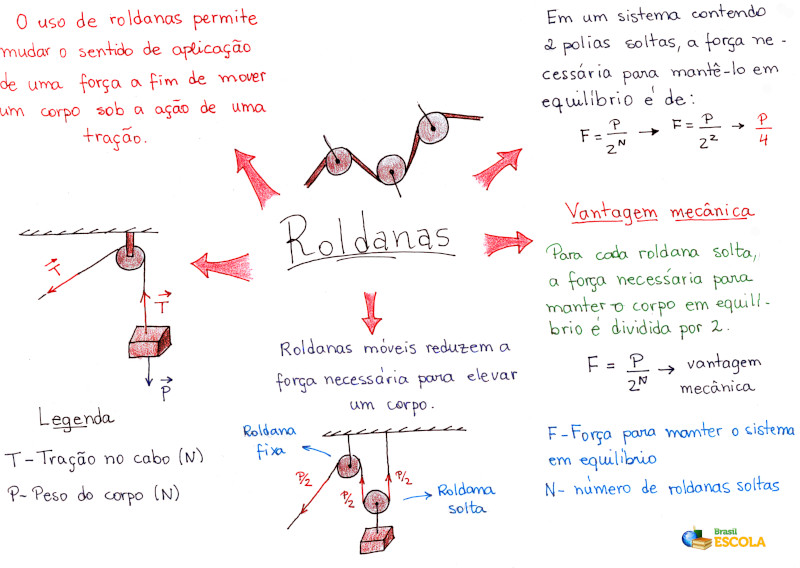 O uso de roldanas permite
mudar o sentido de aplicação
de uma força a fim de mover
um corpo sob a ação de uma
tração.
Em um sistema contendo
2 polias soltas, a força ne-
cessária para mantê-lo em
equilíbrio é de:
F = P/2^N → F = P/2² → P/4
Roldanas
Vantagem mecânica
Para cada roldana solta,
a força necessária para
manter o corpo em equilí-
brio é dividida por 2.
F = P/2^N → vantagem
mecânica
F - Força para manter o sistema
em equilíbrio
N - número de roldanas soltas
T
T
P
Legenda
T - Tração no cabo (N)
P - Peso do corpo (N)
Roldanas móveis reduzem a
força necessária para elevar
um corpo.
Roldana
fixa
P/2
P/2
P/2
Roldana
solta
Brasil
ESCOLA